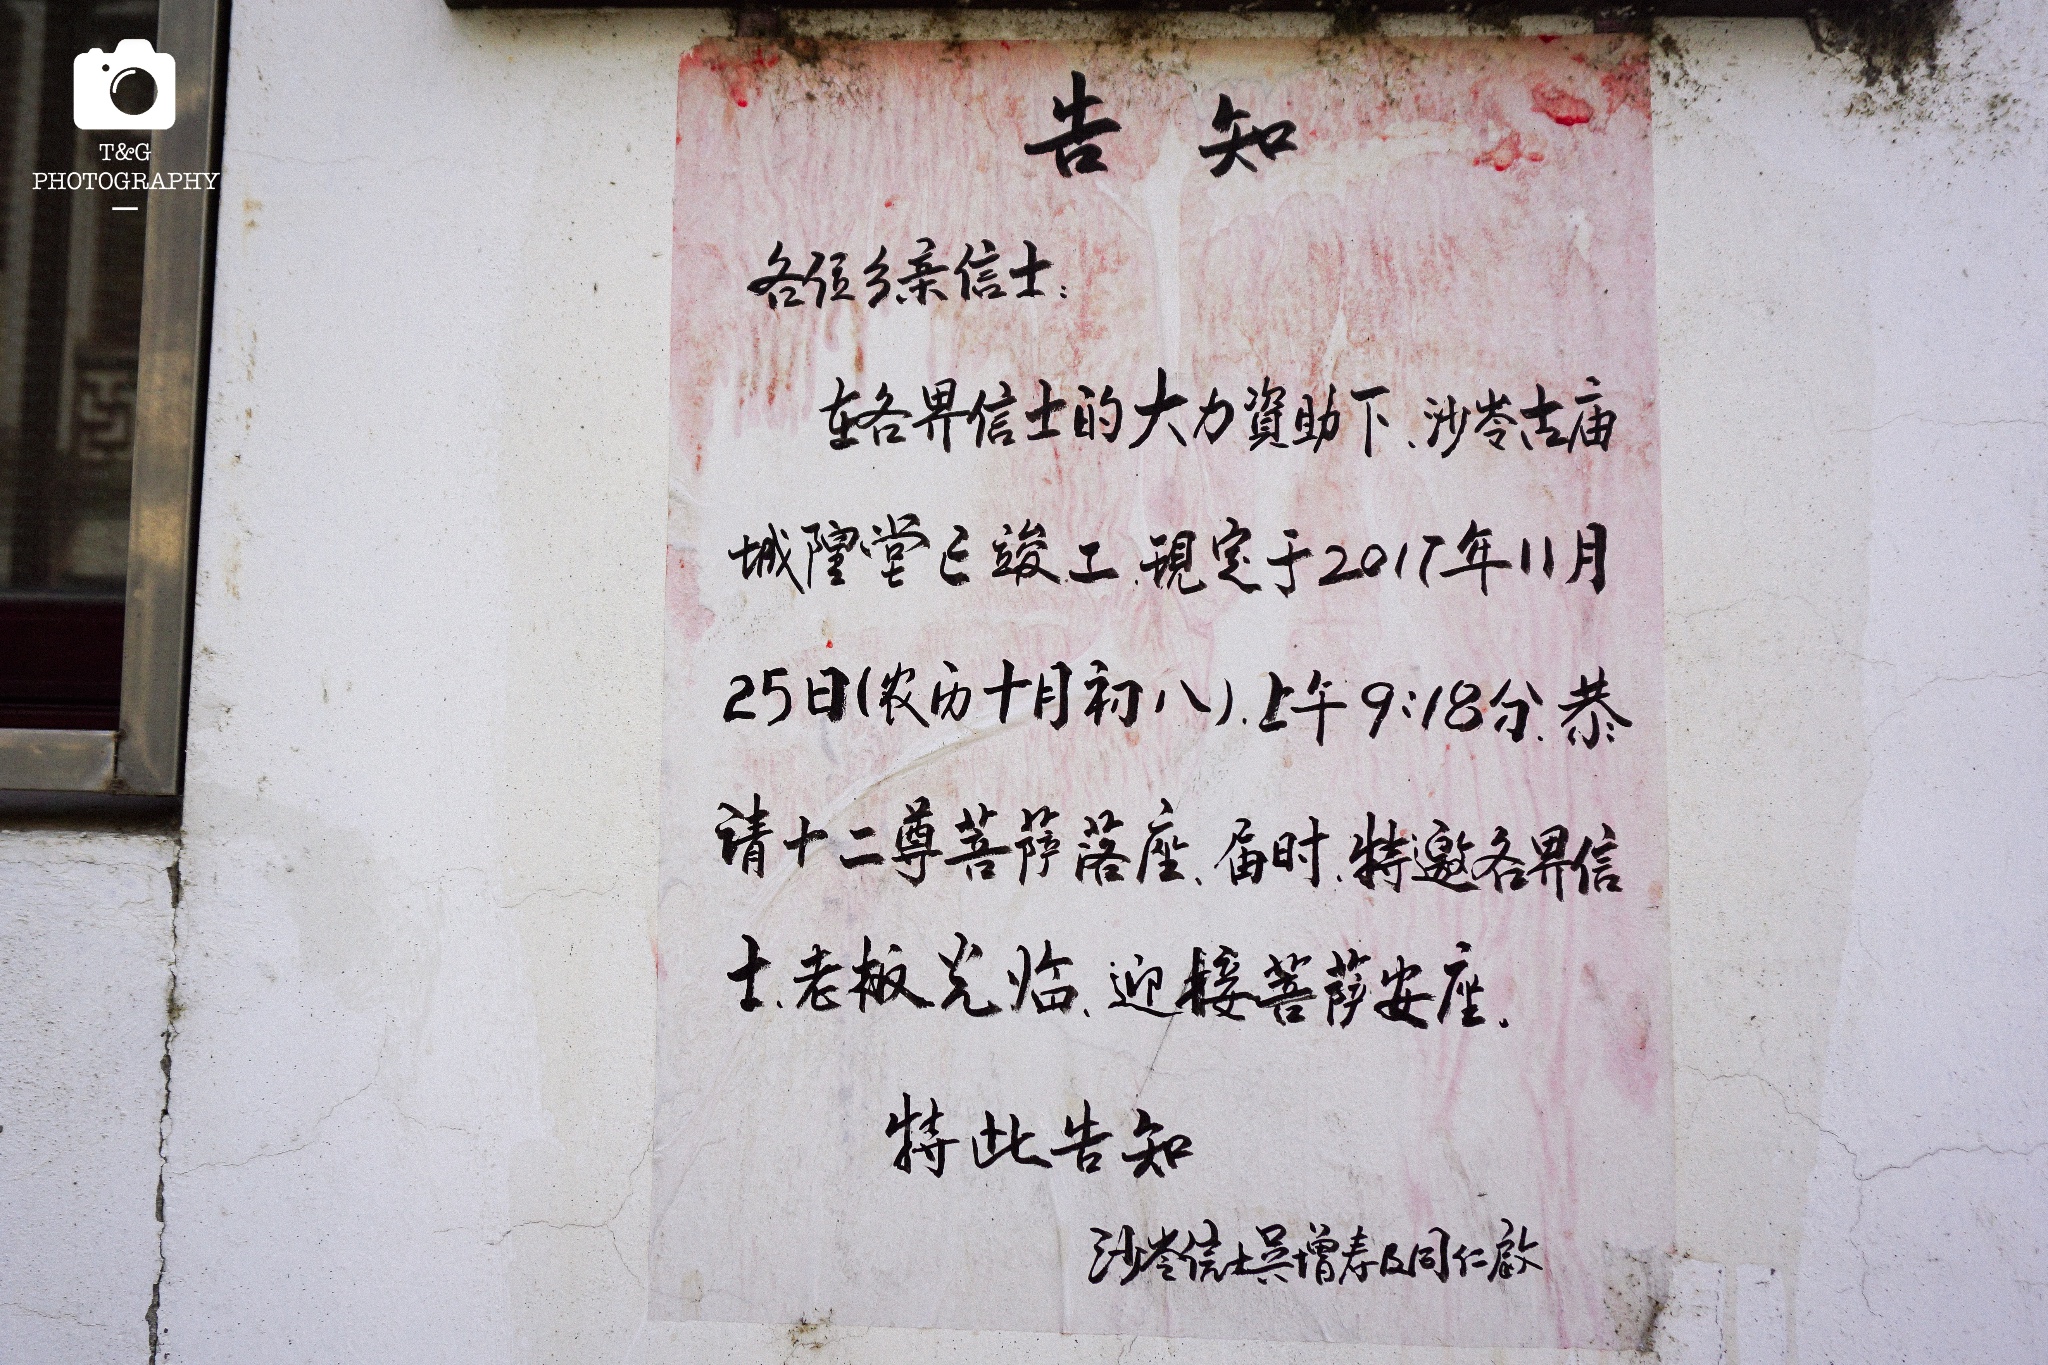 T&G
PHOTOGRAPHY
告知
各位乡亲信士：
在各界信士的大力資助下、沙岺古庙
城隍堂已竣工、現定于2017年11月
25日(农历十月初八)、上午9:18分、恭
请十二尊菩萨落座、届时、特邀各界信
士、老板光临、迎接菩萨安座、
特此告知
沙岺信士吴增寿及同仁啟